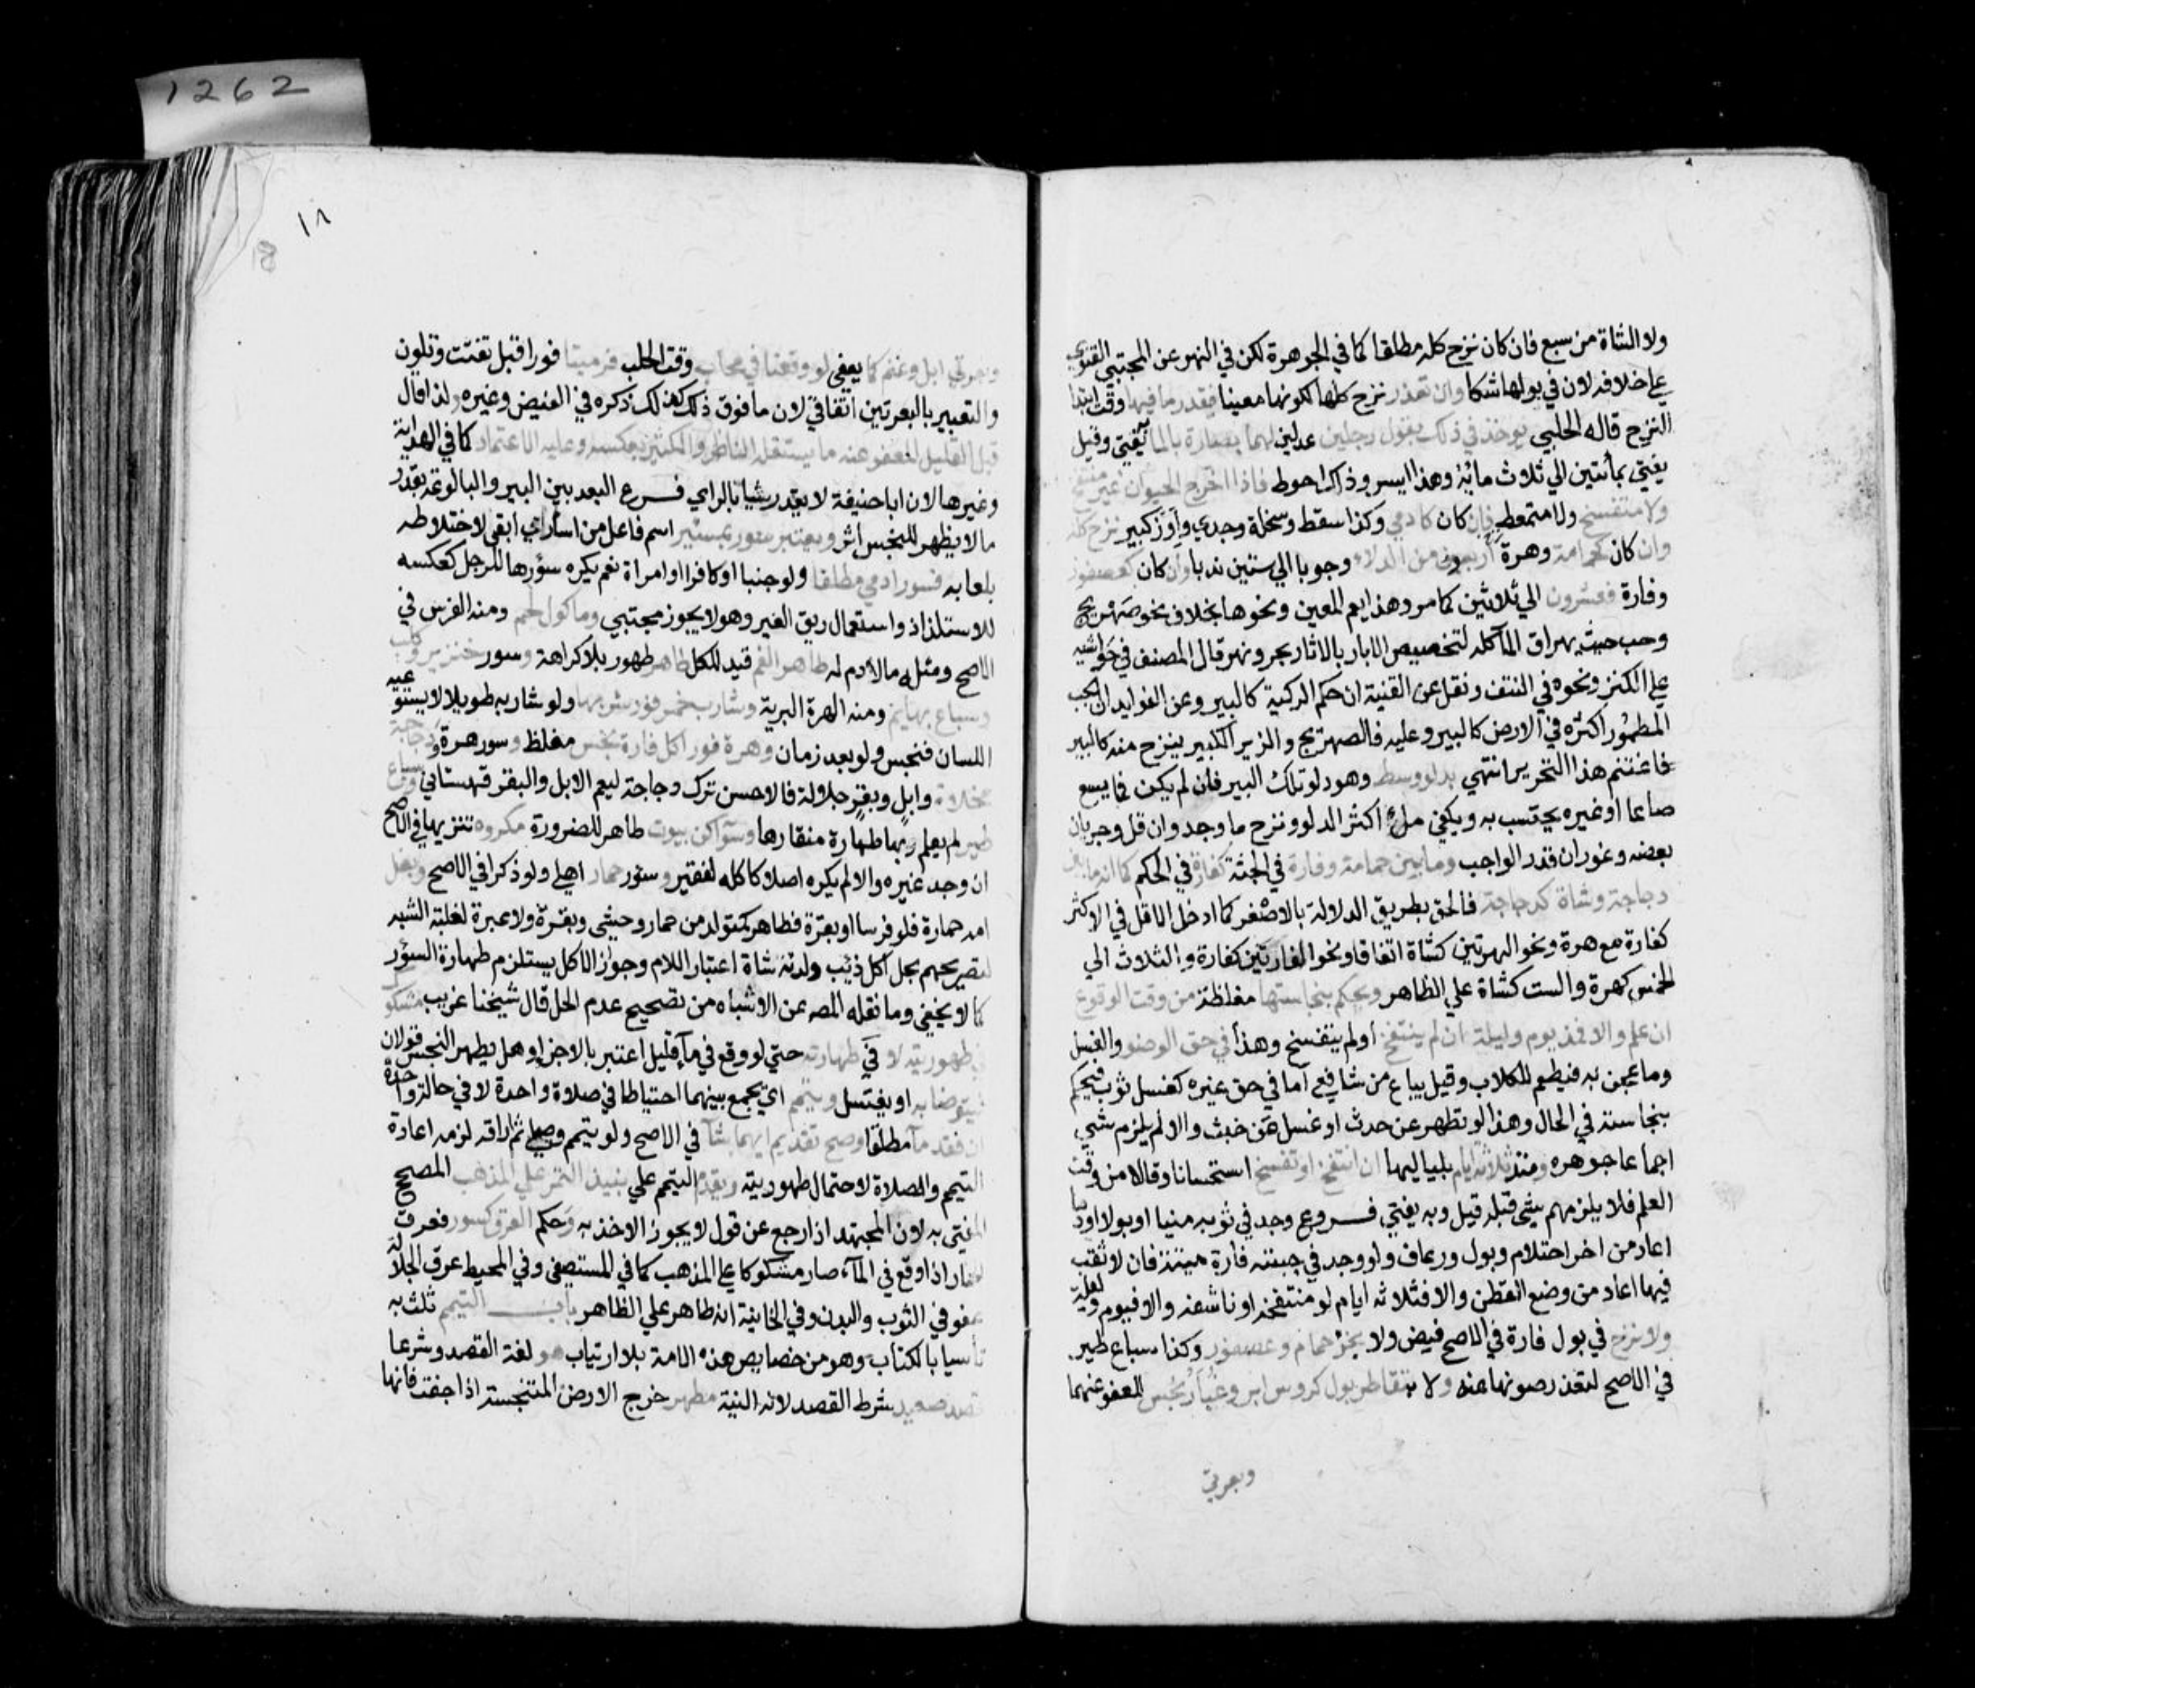 ولا الشاة من سبع فان كان نزح كله مطلقا كما في الجوهرة لكن في النهر عن المجتبي الفتوي
علي خلافه لان في بولها شكا وان تعذر نزح كلها لكونها معينا فبقدر ما فيها وقت ابتدا
النزح قاله الحلبي يوخذ في ذلك بقول رجلين عدلين لهما بصارة بالما به يفتي وقيل
يفتي بمأتين الي ثلاث مائة وهذا ايسر وذاك احوط فاذا اخرج الحيوان غير منتفخ
ولا متفسخ ولا متمعط فان كان كادمي وكذا سقط وسخلة وجدي واوز كبير نزح كله
وان كان كحمامة وهرة اربعون من الدلاء وجوبا الي ستين ندبا وان كان كعصفور
وفارة فعشرون الي ثلاثين كما مر وهذا يعم المعين ونحوها بخلاف نحو صهريج
وحب حيث يهراق المآ كله لتخصيص الابار بالاثار بحر ونهر قال المصنف في حواشيه
علي الكنز ونحوه في النتف ونقل عن القنية ان حكم الركية كالبير وعن الفوايد ان الحب
المطمور اكثره في الارض كالبير وعليه فالصهريج والزير الكبير ينزح منه كالبير
فاغتنم هذا التحرير انتهي بدلو وسط وهو دلو تلك البير فان لم يكن فما يسع
صاعا او غيره يحتسب به ويكفي ملء اكثر الدلو ونزح ما وجد وان قل وجريان
بعضه وغوران قدر الواجب وما بين حمامة وفارة في الجثة كفارة في الحكم كما ان ما بين
دجاجة وشاة كدجاجة فالحق بطريق الدلالة بالاصغر كما ادخل الاقل في الاكثر
كفارة مع هرة ونحو الهرتين كشاة اتفاقا ونحو الفارتين كفارة والثلاث الي
الخمس كهرة والست كشاة علي الظاهر ويحكم بنجاستها مغلظة من وقت الوقوع
ان علم والا فمذ يوم وليلة ان لم ينتفخ او لم يتفسخ وهذا في حق الوضو والغسل
وما عجن به فيطعم للكلاب وقيل يباع من شافعي اما في حق غيره كغسل ثوب فيحكم
بنجاسته في الحال وهذا لو تطهر عن حدث او غسل عن خبث والا لم يلزم شي
اجماعا جوهره ومنذ ثلاثة ايام بلياليها ان انتفخ او تفسخ استحسانا وقالا من وقت
العلم فلا يلزمهم شي قبله قيل وبه يفتي فروع وجد في ثوبه منيا او بولا او دما
اعاد من اخر احتلام وبول ورعاف ولو وجد في جبته فارة ميتة فان لا ثقب
فيها اعاد من وضع القطن والا فثلاثة ايام لو منتفخة او ناشفة والا فيوم وليلة
ولا نزح في بول فارة في الاصح فيض ولا بخرء حمام وعصفور وكذا سباع طير
في الاصح لتعذر صونها عنه ولا بتقاطر بول كروس ابر وغبار نجس للعفو عنهما
وبعرتي
١٨
18
1262
وبعرتي ابل وغنم كما يعفي لو وقعتا في محلب وقت الحلب فرميتا فورا قبل تفتت وتلون
والتعبير بالبعرتين اتفاقي لان ما فوق ذلك كذلك ذكره في الفيض وغيره ولذا قال
قيل القليل المعفو عنه ما يستقله الناظر والكثير بعكسه وعليه الاعتماد كما في الهداية
وغيرها لان ابا حنيفة لا يقدر شيا بالراي فرع البعد بين البير والبالوعة بقدر
ما لا يظهر للنجس اثر ويعتبر سور بمسئر اسم فاعل من اسار اي ابقي لاختلاطه
بلعابه فسور ادمي مطلقا ولو جنبا او كافرا او امراة نعم يكره سؤرها للرجل كعكسه
للاستلذاذ واستعمال ريق الغير وهو لا يجوز مجتبي وماكول لحم ومنه الفرس في
الاصح ومثله ما لا دم له طاهر الفم قيد للكل طاهر طهور بلا كراهة وسور خنزير وكلب
وسباع بهايم ومنه الهرة البرية وشارب خمر فور شربها ولو شاربه طويلا لا يستوعبه
اللسان فنجس ولو بعد زمان وهرة فور اكل فارة نجس مغلظ وسور هرة ودجاجة
مخلاة وابل وبقر جلالة فالاحسن ترك دجاجة ليعم الابل والبقر قهستاني وسباع
طير لم يعلم ربها طهارة منقارها وسواكن بيوت طاهر للضرورة مكروه تنزيها في الاصح
ان وجد غيره والا لم يكره اصلا كاكله لفقير وسئور حمار اهلي ولو ذكرا في الاصح وبغل
امه حمارة فلو فرسا او بقرة فطاهر كمتولد من حمار وحشي وبقرة ولا عبرة لغلبة الشبه
لتصريحهم بحل اكل ذئب ولدته شاة اعتبار اللام وجواز الاكل يستلزم طهارة السؤر
كما لا يخفي وما نقله المصه عن الاشباه من تصحيح عدم الحل قال شيخنا غريب مشكوك
في طهوريته لا في طهارته حتي لو وقع في مآ قليل اعتبر بالاجزا وهل يطهر النجس قولان
فيتوضا به او يغتسل ويتيمم اي يجمع بينهما احتياطا في صلاة واحدة لا في حالة واحدة
ان فقد مآ مطلقا وصح تقديم ايهما شآ في الاصح ولو تيمم وصلي ثم اراقه لزمه اعادة
التيمم والصلاة لاحتمال طهوريته ويقدم التيمم علي نبيذ التمر علي المذهب المصحح
المفتي به لان المجتهد اذا رجع عن قول لا يجوز الاخذ به وحكم العرق كسور فعرق
الحمار اذا وقع في المآء صار مشكوكا علي المذهب كما في المستصفي وفي المحيط عرق الجلالة
عفو في الثوب والبدن وفي الخانية انه طاهر علي الظاهر باب التيمم ثلث به
تأسيا بالكتاب وهو من خصايص هذه الامة بلا ارتياب هو لغة القصد وشرعا
قصد صعيد شرط القصد لانه النية مطهر خرج الارض المتنجسة اذا جفت فانها